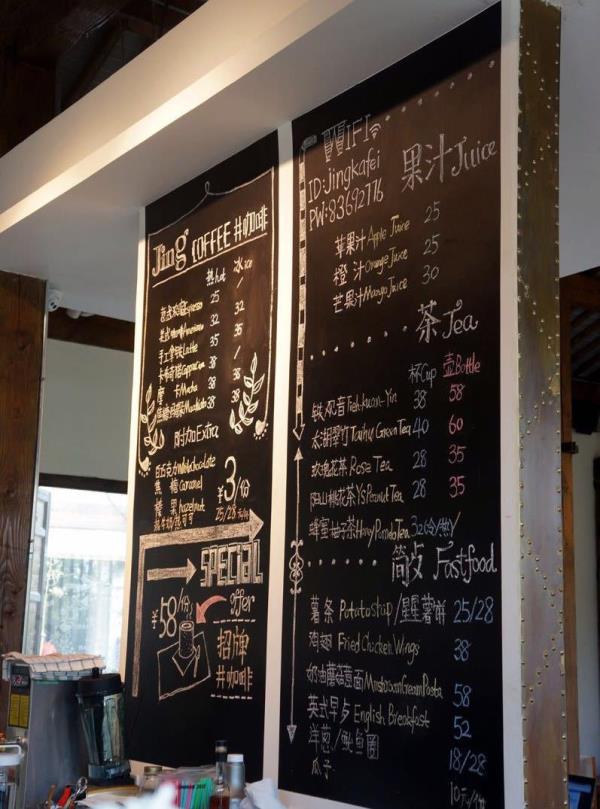 Jing COFFEE 井咖啡
热hot 冰ice
25 /
美式 Americano 32 32
手工拿铁Latte 35 35
卡布奇诺Cappuccino 38 /
摩卡Mocha 38 38
焦糖玛奇朵Macchiato 38 38
附加Extra
Chocolate
焦糖Caramel ¥3/份
榛果hazelnut
25/28
SPECIAL
offer
¥58/份
招牌
井咖啡
WIFI
ID:Jingkafei
PW:83692776
果汁Juice
苹果汁Apple Juice 25
橙汁Orange Juice 25
芒果汁Mango Juice 30
茶Tea
杯Cup 壶Bottle
铁观音Tieh-kuan-Yin 38 58
太湖翠竹Taihu Green Tea 40 60
玫瑰花茶Rose Tea 28 35
阳山桃花茶YS Peanut Tea 28 35
蜂蜜柚子茶Honey Pomelo Tea 32(冷/热)
简食Fastfood
薯条Potatoshap/星星薯饼 25/28
鸡翅Fried Chicken Wings 38
奶油蘑菇意面Mushroom Cream Pasta 58
英式早歺English Breakfast 52
洋葱/鱿鱼圈 18/28
瓜子 10元/份